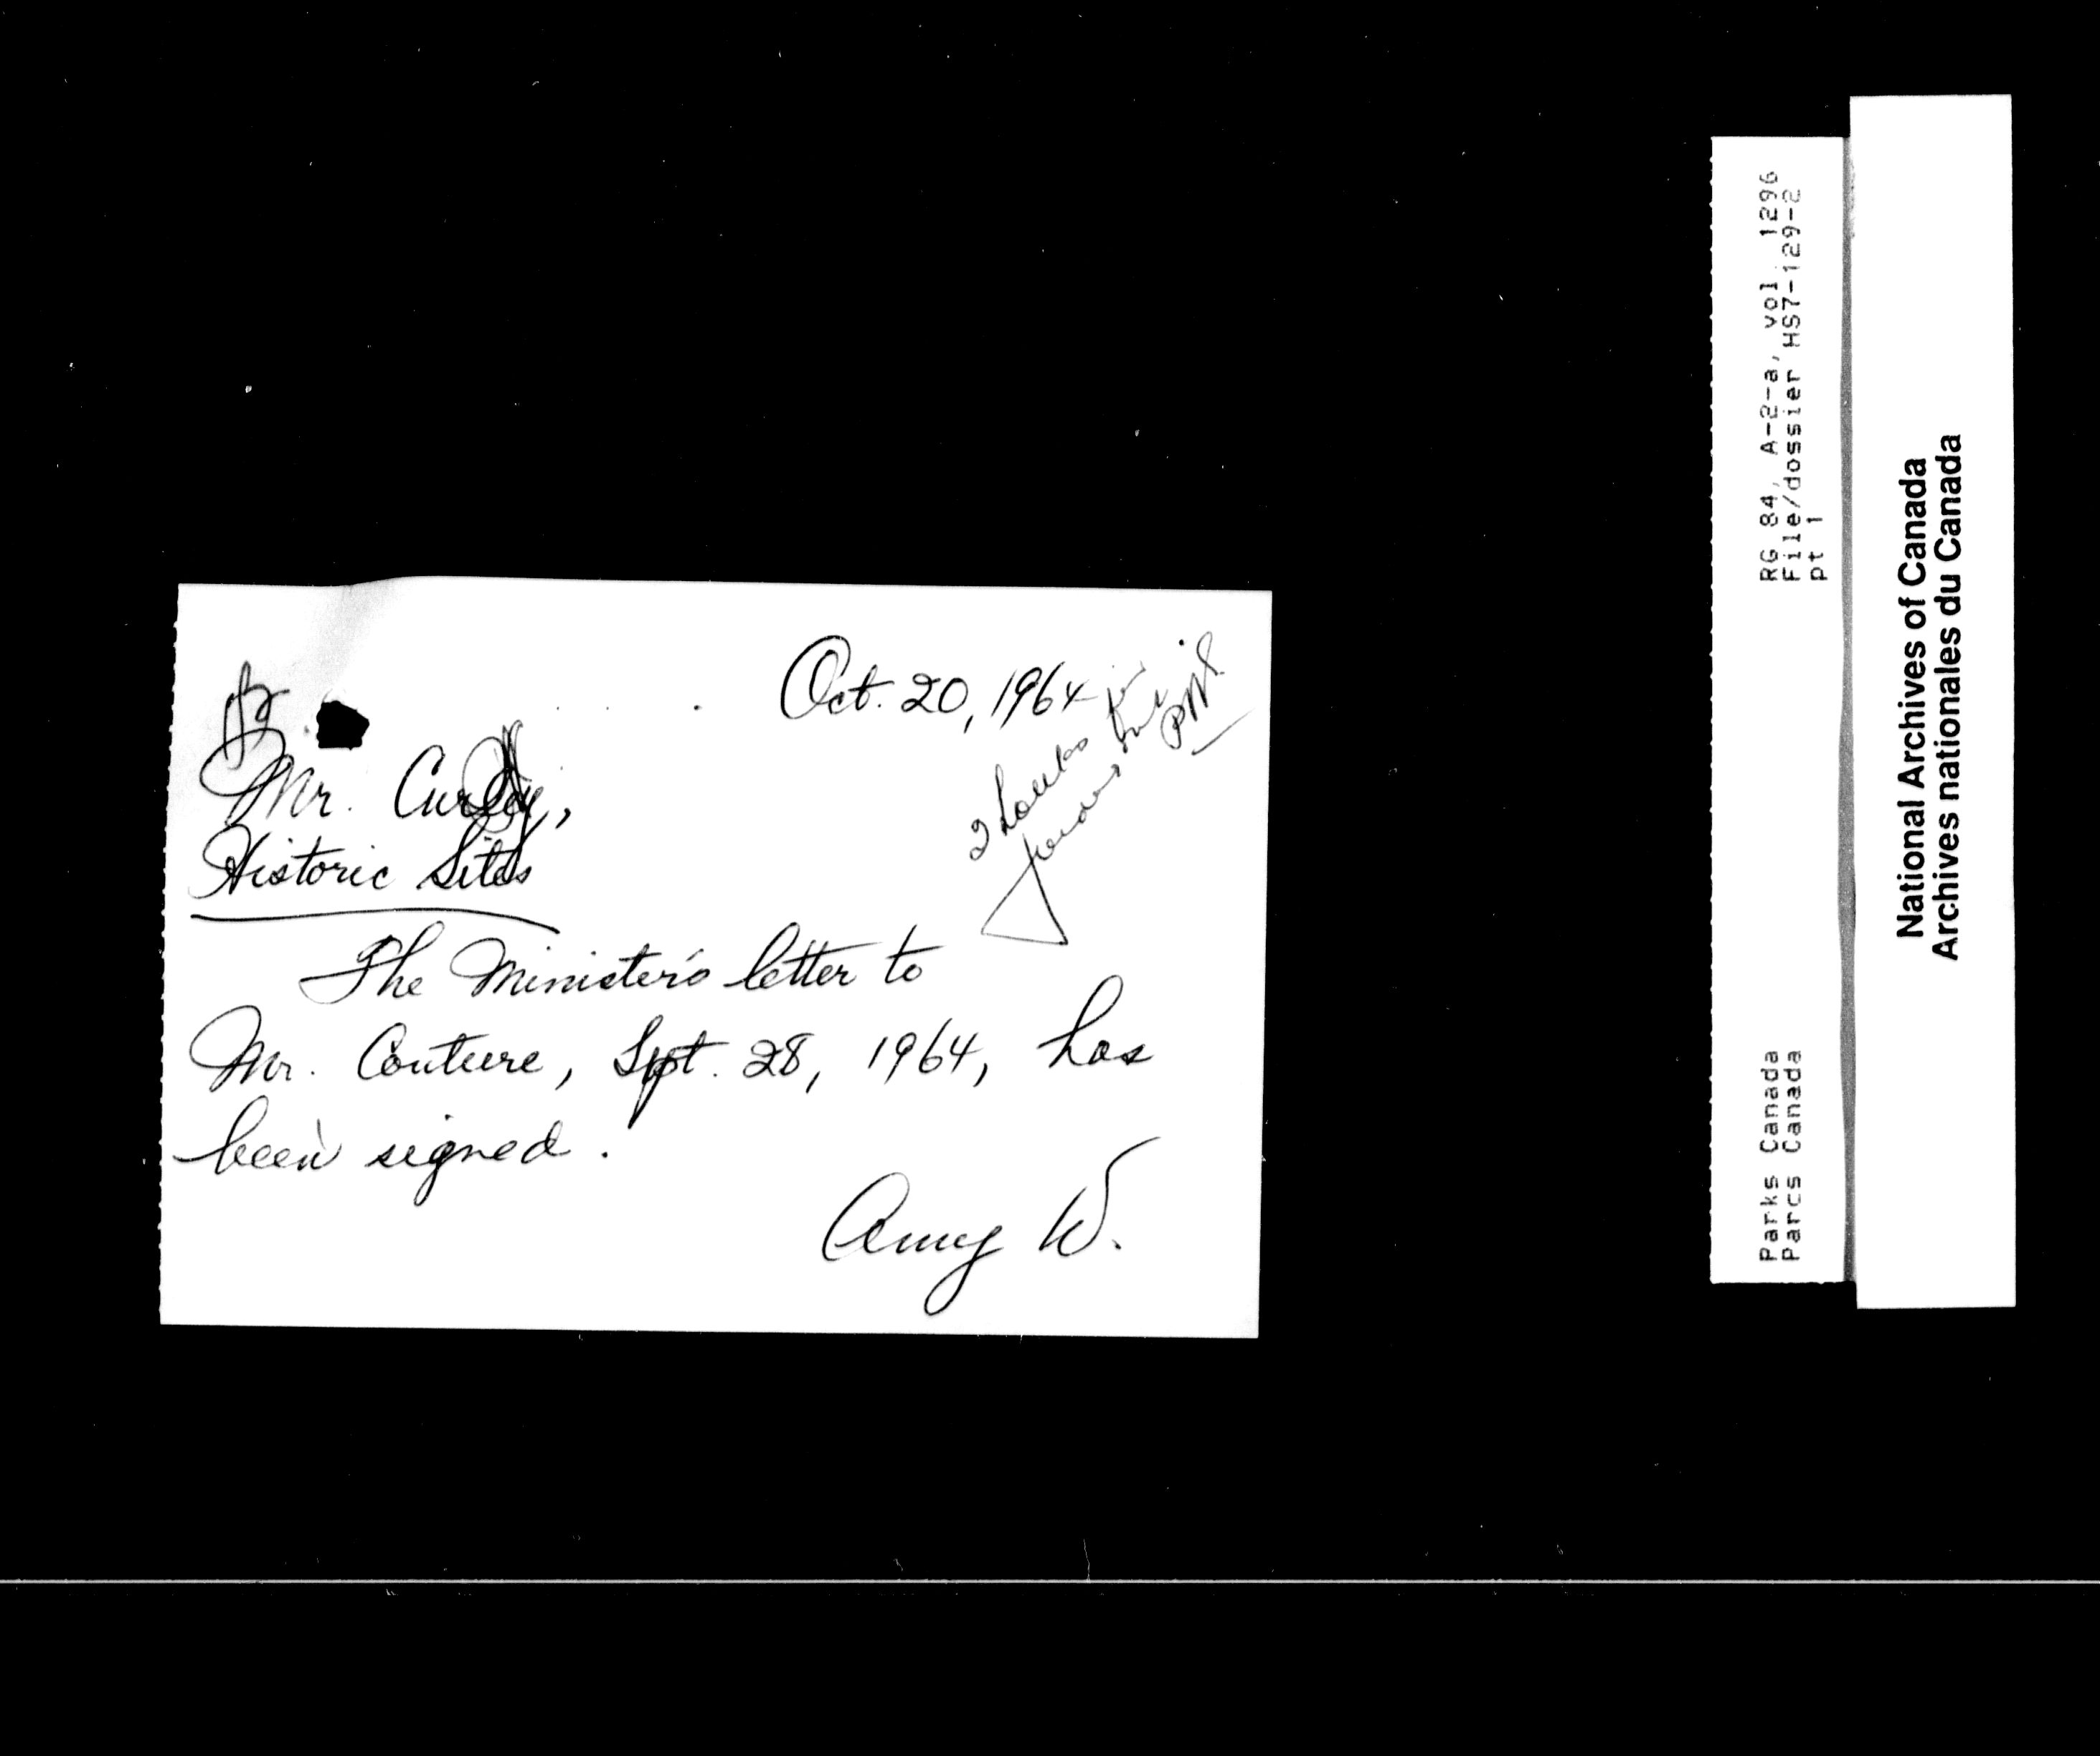 Oct. 20, 1964
Mr. Curley,
Historic Sites
The Minister's letter to
Mr. Couture, Sept. 28, 1964, has
been signed.
Amy W.
Thanks for
RG 84, A-2-a, vol. 1296
File/dossier HS7-129-2
pt 1
Parks Canada
Parcs Canada
National Archives of Canada
Archives nationales du Canada